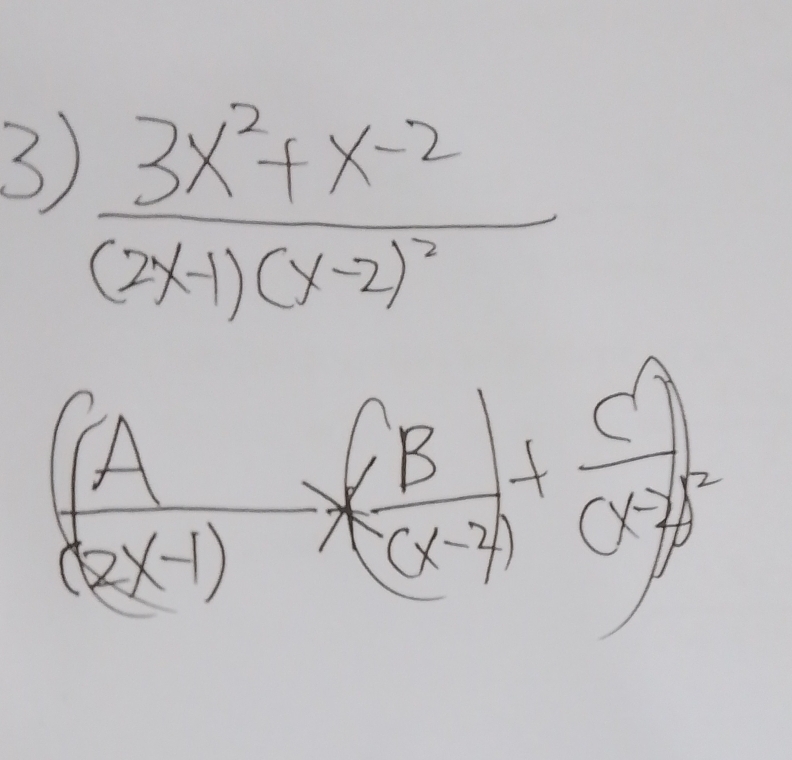 3) 3x²+x-2
(2x-1)(x-2)²
A B + C
(2x-1) * (x-2) (x-2)²